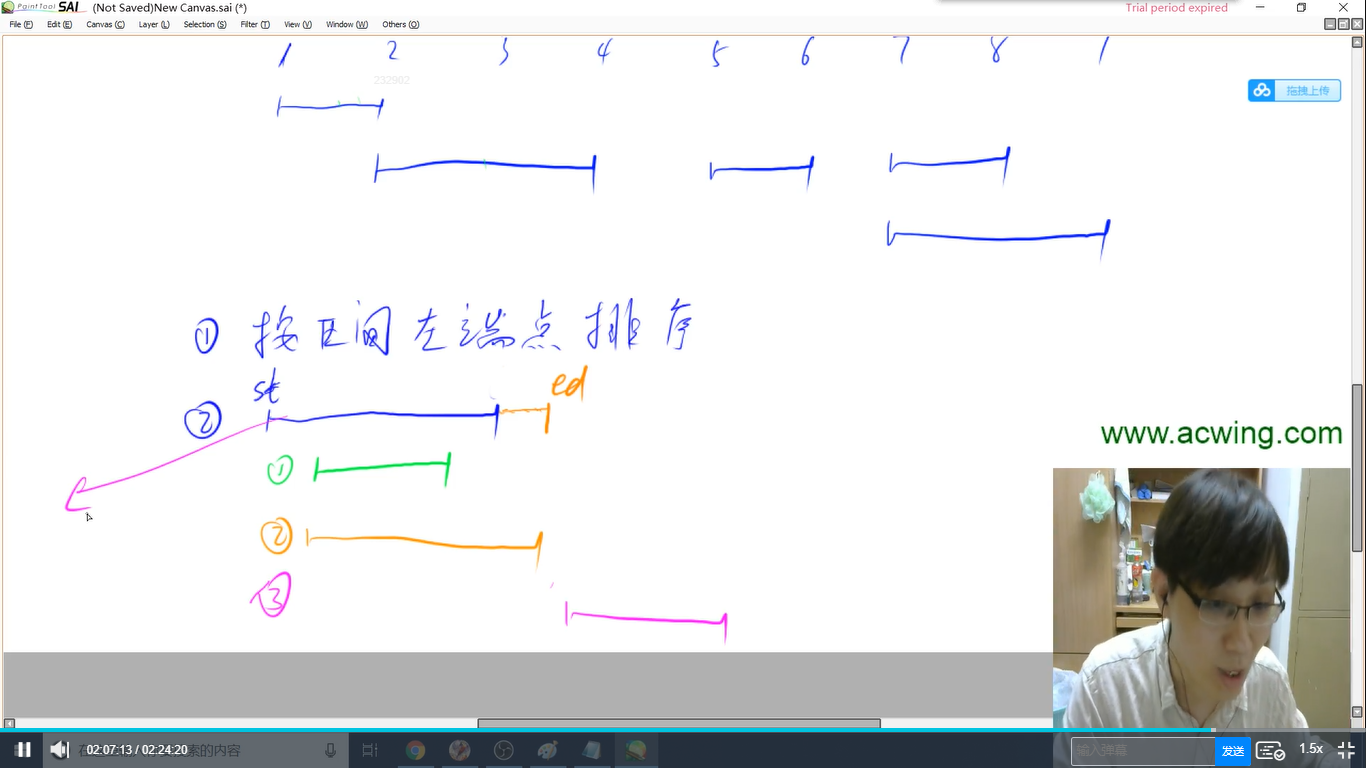 PaintTool SAI (Not Saved)New Canvas.sai (*)
Trial period expired
File (F) Edit (E) Canvas (C) Layer (L) Selection (S) Filter (T) View (V) Window (W) Others (O)
1 2 3 4 5 6 7 8 1
232902
拖拽上传
① 按区间左端点排序
st ed
②
www.acwing.com
①
②
③
02:07:13 / 02:24:20
索的内容
输入弹幕
发送
1.5x